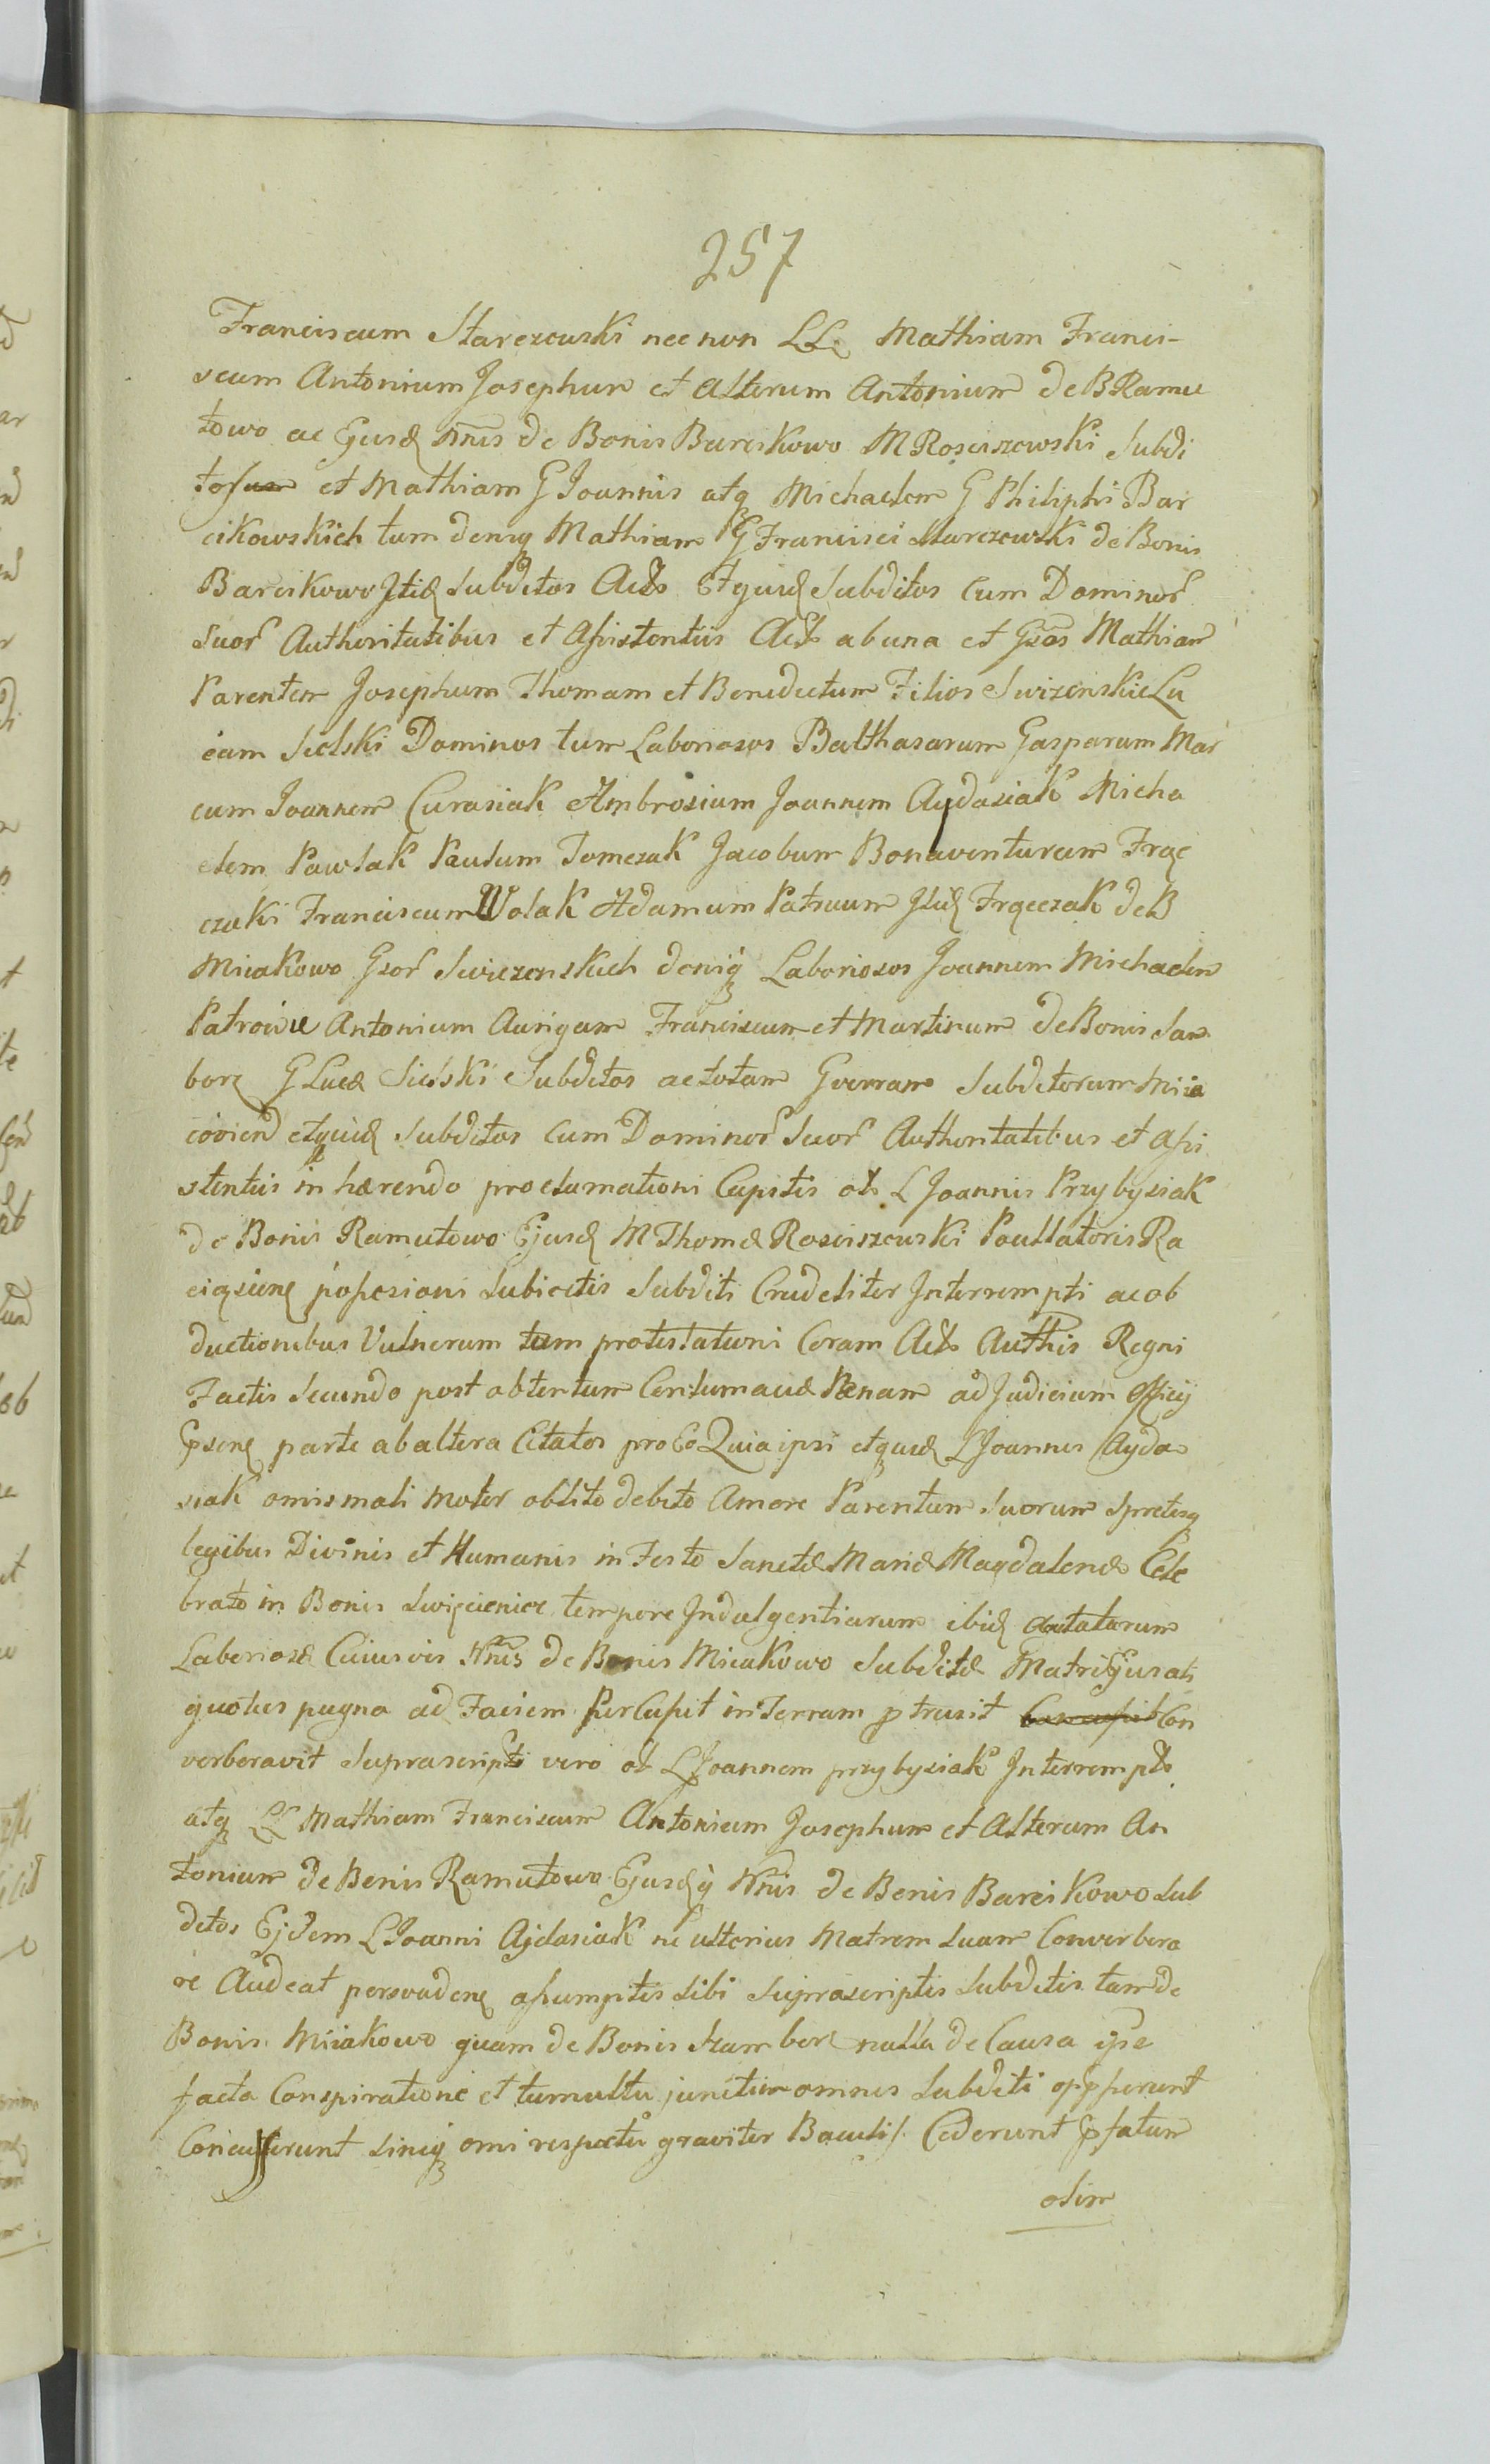 257
Franciscum Starczewski nec non LL Mathiam Franci-
scum Antonium Josephum et Alterum Antonium de B Ramu
towo ac Ejusd Nnis de Bonis Barcikowo M Rosciszewski Subdi
tos et Mathiam G Joannis atq Michaelem G Philiphi Bar
cikowskich tum deniq Mathiam G Francisci Starczewski de Bonis
Barcikowo Itid Subditos Acts Etquid Subditos Cum Dominor
Suor Authoritatibus et Assistentiis Acts ab una et Gsos Mathiam
Parentem Josephum Thomam et Benedictum Filios Swizenskie Lu
cam Sielski Dominos tum Laboriosos Balthasarum Gasparum Mar
cum Joannem Curasiak Ambrosium Joannem Aydasiak Micha
elem Pawlak Paulum Tomczak Jacobum Bonaventuram Frąc
czaki Franciscum Wolak Adamum Patruum Itid Frącczak de B
Miiakowo Gsor Swiezenskich deniq Laboriosos Joannem Michaelem
Patrowie Antonium Aurigam Franciscum et Martinum de Bonis San
borz G Lucæ Sielski Subditos ac totam Gverram Subditorum Miia
coviend etquid Subditos Cum Dominor Suor Authoritatibus et Assi
stentiis in hærendo proclamationi Capitis ol L Joannis Przybysiak
de Bonis Ramutowo Ejusd M Thomæ Rosciszewski Paullatoris Ra
ciąziens possesioni Subiectis Subditi Crudeliter Interrempti ac ob
ductionibus Vulnerum tum protestationi Coram Acts Authis Regni
Factis Secundo post obtentum Contumaciæ Pænam ad Judicium Officij
Gpsens parte ab altera Citatos pro Eo Quia ipsi etquid L Joannes Ayda
siak omis mali Motor oblito debito Amore Parentum Suorum Spretisq
legibus Divinis et Humanis in Festo Sanctæ Mariæ Magdalenæ Cele
brato in Bonis Swięcienice tempore Indulgentiarum ibid
Laboriosæ Cuiusvis Nnis de Bonis Miiakowo Subditæ Matri Ejus ali
quoties pugno ad Faciem PerCusit in Terram ptrusit Con
verberavit Suprascripti vero ol L Joannem przybysiak Interrempts
atq LL Mathiam Franciscum Antonium Josephum et Alterum An
tonium de Bonis Ramutowo Ejusdq Nnis de Bonis Barcikowo Sub
ditos Ejdem L Joanni Ajdasiak ne ulterius Matrem Suam Converbera
re Audeat persvadens assumptis Sibi Suprascriptis Subditis tam de
Bonis Miiakowo quam de Bonis Szamborz nulla de Causa ipse
facta Conspiratione et tumultu junctim omnes Subditi oppserunt
Concusserunt Sineq omi respectu graviter Baculis Cederunt pfatum
olim